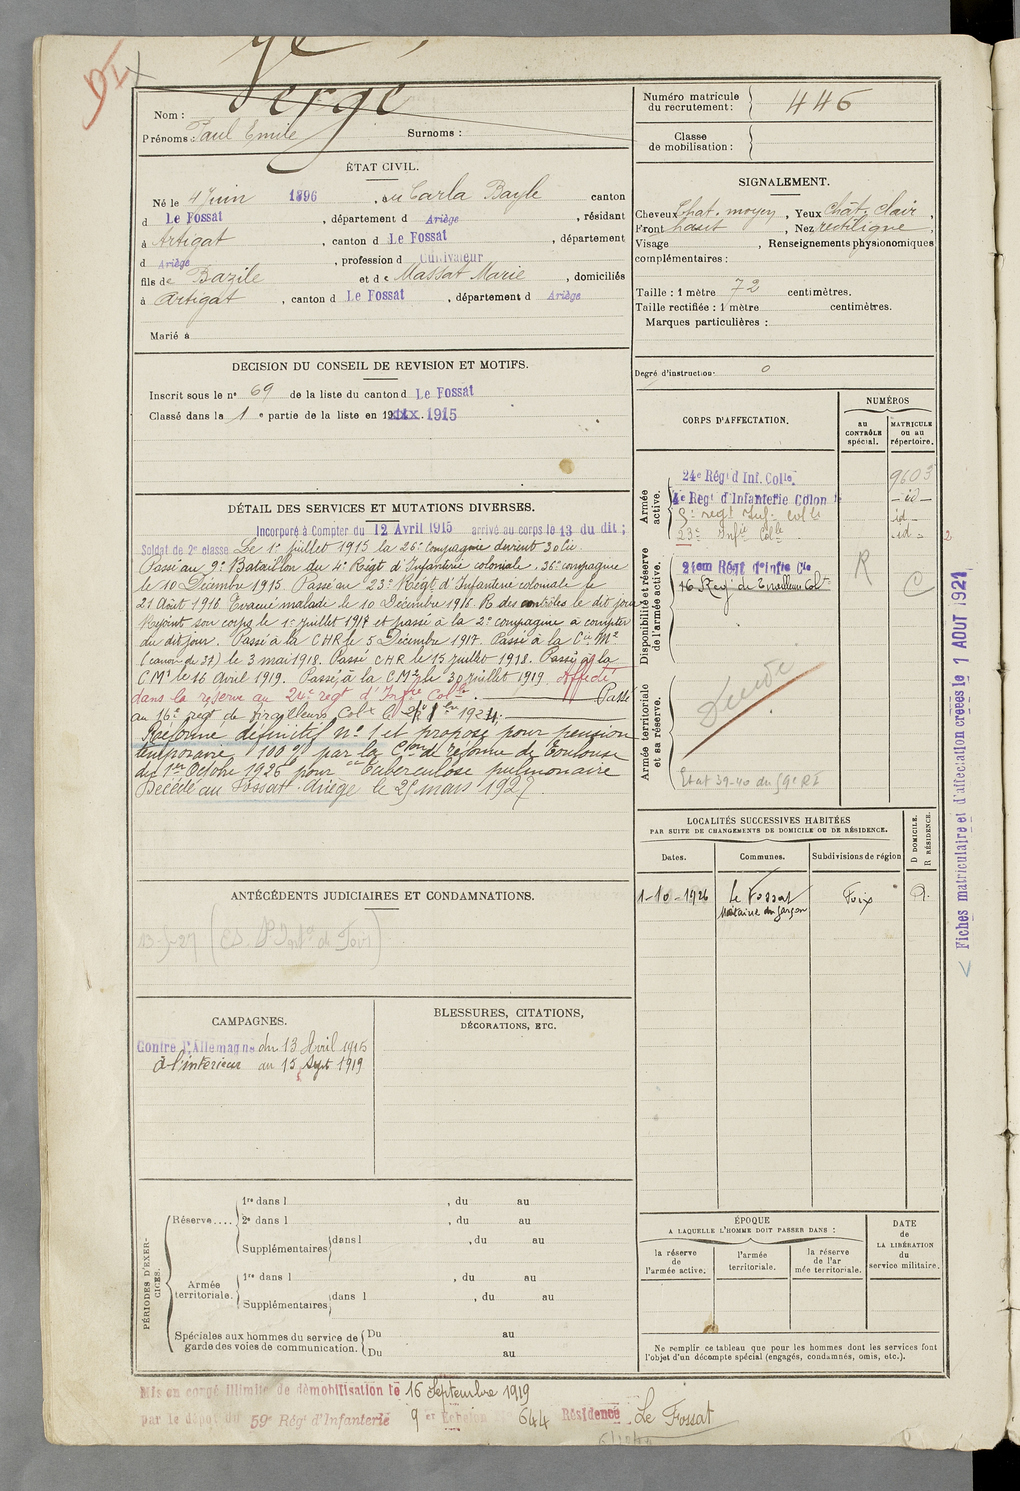 Nom : Vergé
Prénoms : Paul Emile Surnoms :
ÉTAT CIVIL.
Né le 4 Juin 1896, au Carla Bayle canton
d Le Fossat, département d Ariège, résidant
à Artigat, canton d Le Fossat, département
d Ariège, profession d Cultivateur
fils de Bazile et de Massat Marie, domiciliés
à Artigat, canton d Le Fossat, département d Ariège
Marié à
DECISION DU CONSEIL DE REVISION ET MOTIFS.
Inscrit sous le n° 69 de la liste du canton d Le Fossat
Classé dans la 1e partie de la liste en 1915
DÉTAIL DES SERVICES ET MUTATIONS DIVERSES.
Incorporé à Compter du 12 Avril 1915 arrivé au corps le 13 du dit ;
Soldat de 2e classe Le 1er juillet 1915 la 26e compagnie devient 30e
Passé au 9e Bataillon du 4e Régt d'Infanterie coloniale. 36e compagnie
le 10 Décembre 1915. Passé au 23e Régt d'Infanterie coloniale le
21 Août 1916. Evacué malade le 10 Décembre 1916. R des contrôles le dit jour
Rejoint son corps le 1er juillet 1917 et passé à la 2e compagnie à compter
du dit jour. Passé à la CHR le 5 Décembre 1917. Passé à la Cie M2
(canon de 37) le 3 mai 1918. Passé CHR le 15 juillet 1918. Passé à la
CM1 le 16 Avril 1919. Passé à la CM2 le 30 juillet 1919. Affecté
dans la réserve au 24e regt d'Inftie Colle. Passé
au 16e regt de tirailleurs Colx le 1924.
Réforme définitif n° 1 et proposé pour pension
temporaire 100 % par la Con de réforme de Toulouse
du 1er Octobre 1926 pour "Tuberculose pulmonaire
Décédé au Fossat Ariège le 25 mars 1927.
ANTÉCÉDENTS JUDICIAIRES ET CONDAMNATIONS.
CAMPAGNES.
Contre l'Allemagne du 13 Avril 1915
à l'intérieur au 15 Sept 1919
BLESSURES, CITATIONS,
DÉCORATIONS, ETC.
PÉRIODES D'EXERCICES.
Réserve.... 1re dans l , du au
2e dans l , du au
Supplémentaires dans l , du au
Armée territoriale. 1re dans l , du au
Supplémentaires dans l , du au
Spéciales aux hommes du service de garde des voies de communication. Du au
Du au
Mis en congé illimité de démobilisation le 16 Septembre 1919
par le dépôt du 59e Rég d'Infanterie 9e Echelon N° 644 Résidence Le Fossat
Numéro matricule
du recrutement : 446
Classe
de mobilisation :
SIGNALEMENT.
Cheveux Chat. moyen, Yeux Chât. clair,
Front haut, Nez rectiligne,
Visage , Renseignements physionomiques
complémentaires :
Taille : 1 mètre 72 centimètres.
Taille rectifiée : 1 mètre centimètres.
Marques particulières :
Degré d'instruction. 0
CORPS D'AFFECTATION.
NUMÉROS
AU CONTRÔLE spécial.
MATRICULE ou au répertoire.
Armée active.
24e Rég d'Inf. Colle. 9603
4e Regt d'Infanterie Colon le - id -
5e regt Inf. colle id -
23e Infie Colle id -
Disponibilité et réserve de l'armée active.
24eme Régt d'Infie Cle R
16 Reg de Tirailleurs Colx C
Armée territoriale et sa réserve.
Décédé
LOCALITÉS SUCCESSIVES HABITÉES
PAR SUITE DE CHANGEMENTS DE DOMICILE OU DE RÉSIDENCE.
Dates.
Communes.
Subdivisions de région
D DOMICILE.
R RÉSIDENCE.
1-10-1926 Le Fossat Foix D.
ÉPOQUE
A LAQUELLE L'HOMME DOIT PASSER DANS :
la réserve de l'armée active.
l'armée territoriale.
la réserve de l'armée territoriale.
DATE de LA LIBÉRATION du service militaire.
Ne remplir ce tableau que pour les hommes dont les services font
l'objet d'un décompte spécial (engagés, condamnés, omis, etc.).
Fiches matriculaire et d'affectation créées le 1 AOUT 1921